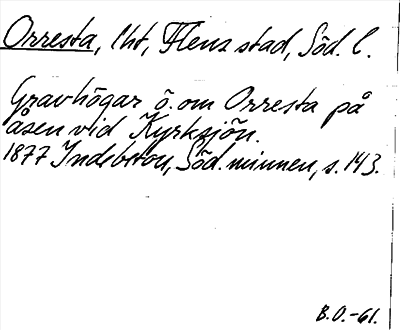 Orresta, 1 ht, Flens stad, Söd. l.
Gravhögar ö. om Orresta på
åsen vid Kyrksjön.
1877 Indebetou, Söd. minnen, s. 143.
B.O.-61.